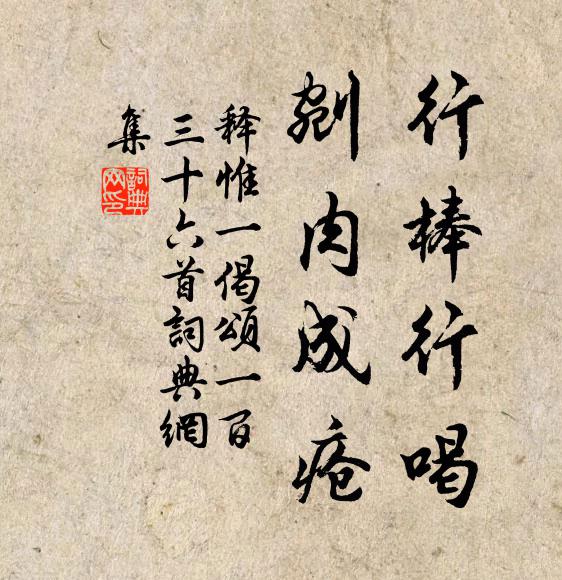 行棒行喝
剜肉成疮
释惟一偈頌一百
三十六首詞典網
集
詞典
网印